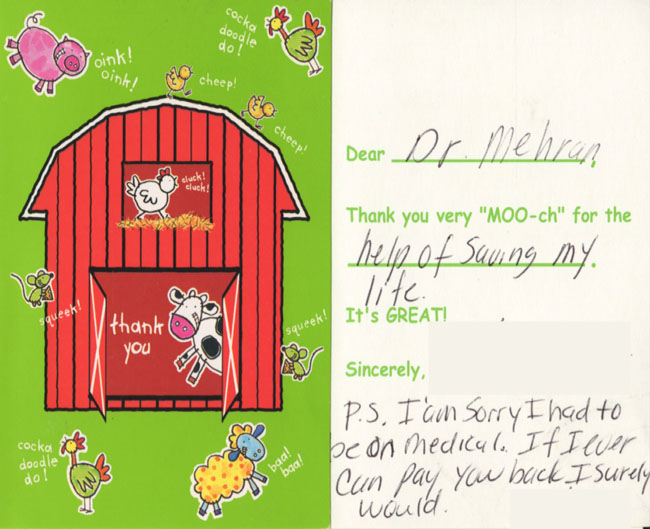 oink!
oink!
cocka
doodle
do!
cheep!
cheep!
cluck!
cluck!
squeek!
thank
you
squeek!
cocka
doodle
do!
baa!
baa!
Dear Dr. Mehran,
Thank you very "MOO-ch" for the
help of Saving my.
life.
It's GREAT!
Sincerely,
P.S. I'am Sorry I had to
be on Medical. If I ever
Can pay you back I surely
would.